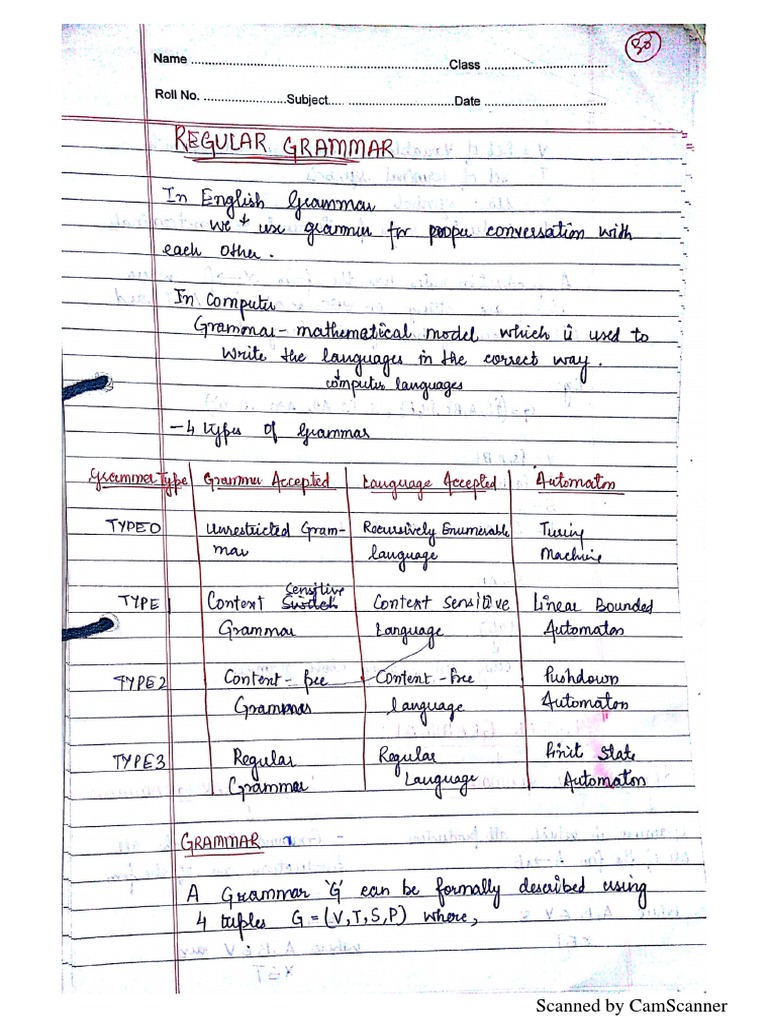 38
Name ........................ Class ........................
Roll No. ........................ Subject..... ........................ Date ........................
REGULAR GRAMMAR
In English Grammar
we use grammer for proper conversation with
each other.
In Computer
Grammar - mathematical model which is used to
write the languages in the correct way.
computer languages
- 4 types of Grammar
Grammar Type | Grammar Accepted | Language Accepted | Automaton
TYPE0 | Unrestricted Gram- | Recursively Enumerable | Turing
mar | language | Machine
Sensitive
TYPE 1 | Context | Context Sensitive | Linear Bounded
Grammar | Language | Automaton
TYPE2 | Context - free | Context - free | Pushdown
Grammar | language | Automaton
TYPE3 | Regular | Regular | Finit State
Grammar | Language | Automaton
GRAMMAR
A Grammar 'G' can be formally described using
4 tuples G = (V, T, S, P) where,
Scanned by CamScanner